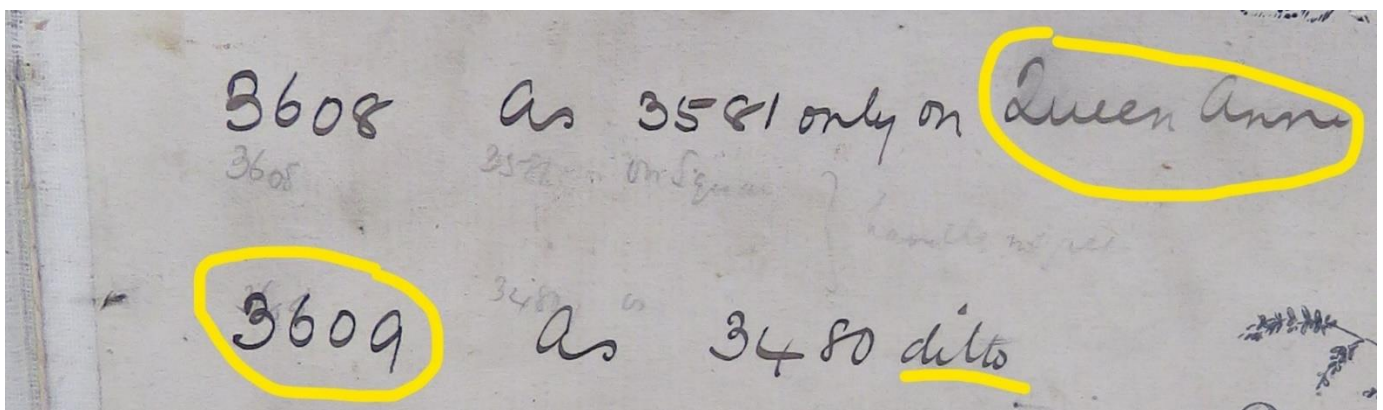 3608 As 3581 only on Queen Anne
3608 on Square
3609 As 3480 ditto